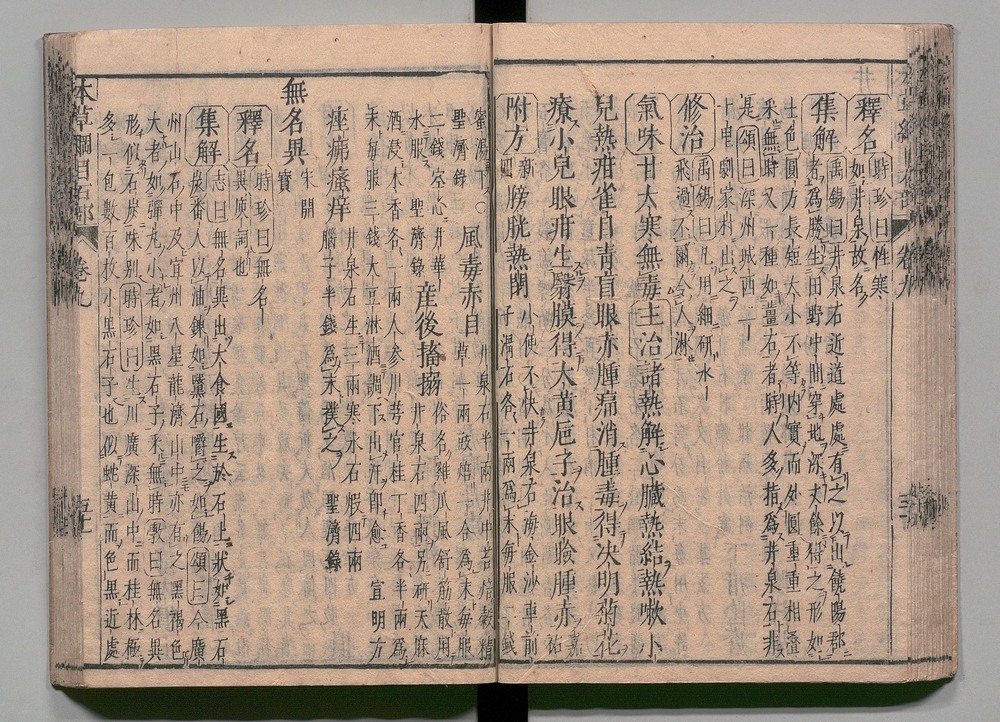 釋名時珍曰性寒
如井泉故名
集解禹錫曰井泉石近道處處有之以出饒陽郡
者為勝生田野中間穿地深丈餘得之形如
土色圓方長短大小不等內實而外圓重重相疊
采無時又一種如薑石者時人多指為井泉石非
是頌曰深州城西
十里劇家村出之
修治禹錫曰凡用細研水
飛過不爾令人淋
氣味甘大寒無毒主治諸熱解心臟熱結熱嗽小
兒熱疳雀目青盲眼赤腫痛消腫毒得決明菊花
療小兒眼疳生翳膜得大黃巵子治眼瞼腫赤嘉祐
附方新四膀胱熱閉小便不快井泉石海金沙車前
子滑石各一兩為末每服二錢
蜜湯下○
聖濟錄風毒赤目井泉石半兩井中苔焙穀精
草一兩豉焙一合為末每服
二錢空心井華
水服聖濟錄產後搐搦俗名雞爪風舒筋散用
井泉石四兩另研天麻
酒浸木香各一兩人參川芎官桂丁香各半兩為
末每服三錢大豆淋酒調下出汗即愈宣明方
痤疿瘙痒井泉石生三兩寒水石煅四兩
腦子半錢為末撲之聖濟錄
無名異宋開
寶
釋名時珍曰無名
異庾詞也
集解志曰無名異出大食國生於石上狀如黑石
炭番人以油鍊如黳石嚼之如餳頌曰今廣
州山石中及宜州八星龍濟山中亦有之黑褐色
大者如彈丸小者如黑石子采無時斆曰無名異
形似石炭味別時珍曰生川廣深山中而桂林極
多一包數百枚小黑石子也似蛇黃而色黑近處
本草綱目石部
卷九